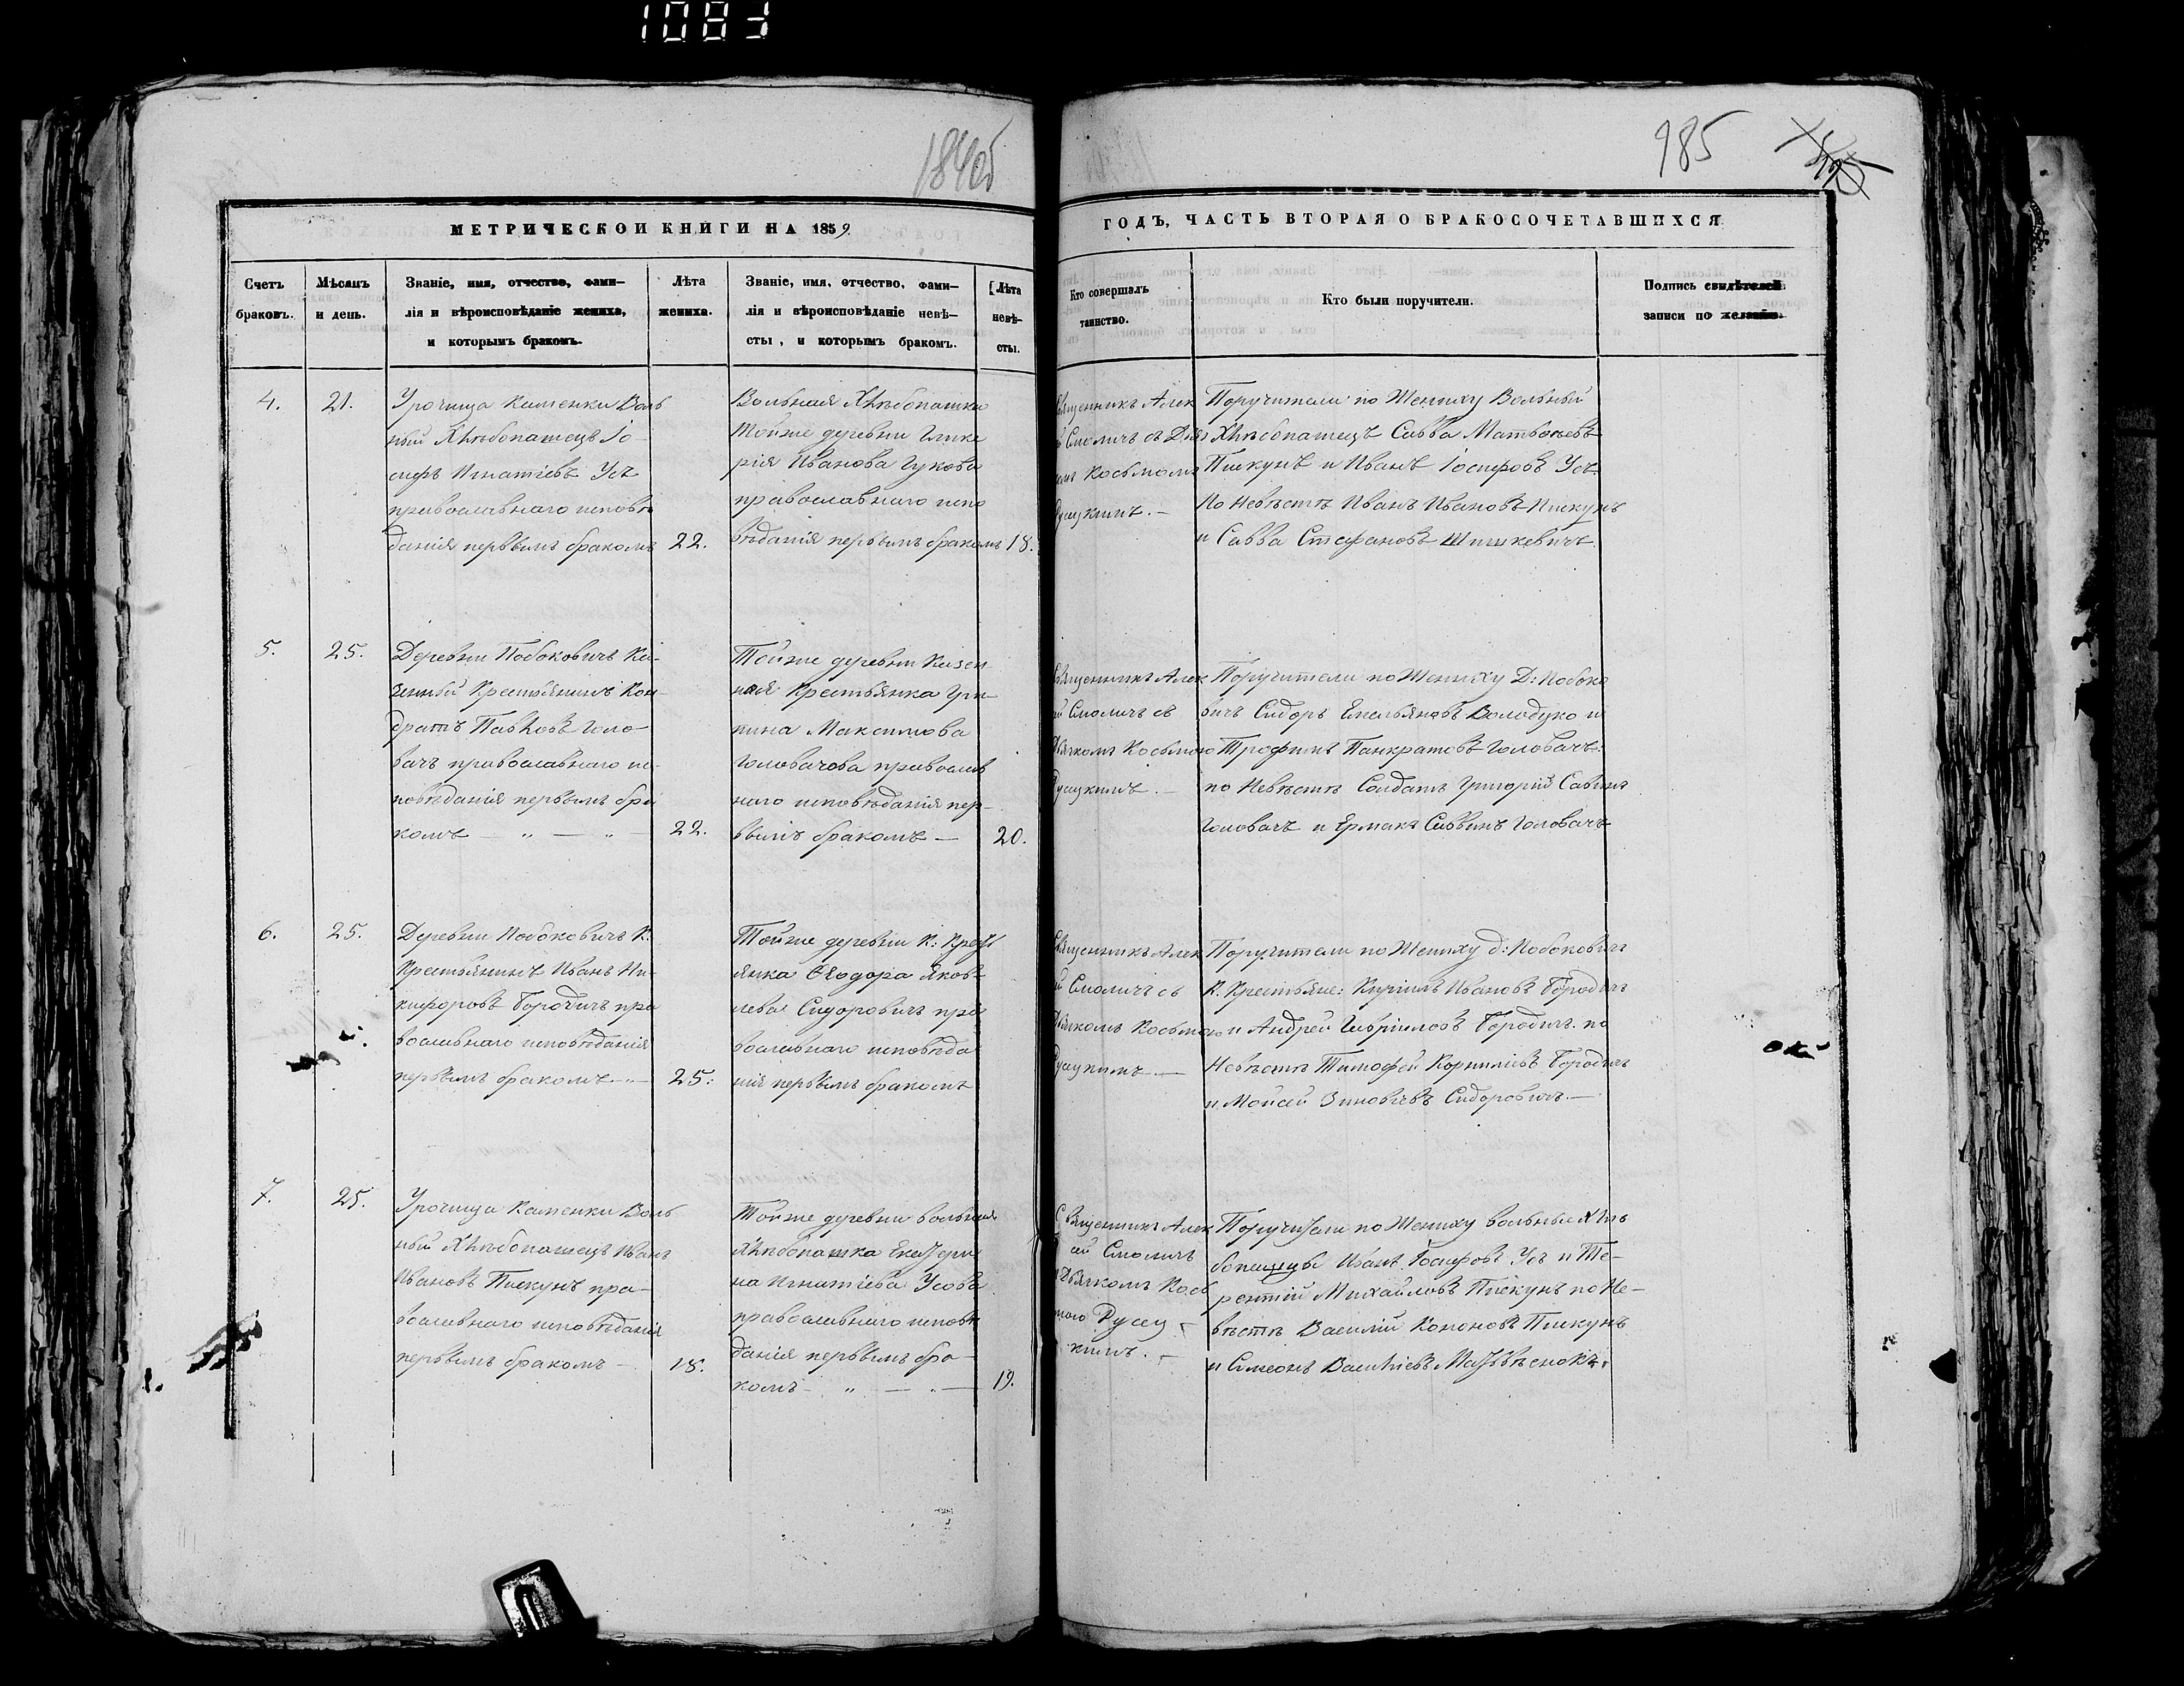 1840б
985
МЕТРИЧЕСКОЙ КНИГИ НА 1859
ГОДЪ, ЧАСТЬ ВТОРАЯ О БРАКОСОЧЕТАВШИХСЯ
Счетъ
браковъ.
Мѣсяцъ
и день.
Званіе, имя, отчество, фами–
лія и вѣроисповѣданіе жениха,
и которымъ бракомъ.
Лѣта
жениха.
Званіе, имя, отчество, фами–
лія и вѣроисповѣданіе невѣ–
сты, и которымъ бракомъ.
Лѣта
невѣ–
сты.
Кто совершалъ
таинство.
Кто были поручители.
Подпись свидѣтелей
записи по желанію.
4.
21.
Урочища Каменки Воль
ный Хлѣбопашецъ Іо–
сифъ Игнатіевъ Усъ
православнаго исповѣ
данія первымъ бракомъ
22.
Вольная Хлѣбопашка
Тойже деревни Глике
рія Иванова Гукова
православнаго испо
вѣданія первымъ бракомъ
18.
Священникъ Алек
й Смоличъ съ Дья
комъ Косьмою
Руцкимъ. –
Поручители по Жениху Вольный
Хлѣбопашецъ Савва Матвѣевъ
Пискунъ и Иванъ Іосифовъ Усъ.
По Невѣстѣ Иванъ Ивановъ Пискунъ
и Савва Стефановъ Шишкевичъ.
5.
25.
Деревни Побоковичъ Ка–
зенный Крестьянинъ Кон–
дратъ Павловъ Голо–
вачъ православнаго ис–
повѣданія первымъ бра
комъ — „ — „ —
22.
Тойже деревни Казен
ная Крестьянка Гри–
пина Максимова
Головачова православ
наго исповѣданія пер–
вымъ бракомъ —
20.
Священникъ Алек
й Смоличъ съ
Дьячкомъ Косьмою
Руцкимъ. –
Поручители по Жениху Д: Побоко
вичъ Сидоръ Емельяновъ Володцко и
Трофимъ Панкратовъ Головачъ:
по Невѣстѣ Солдатъ Григорій Савинъ
Головачъ и Ермакъ Саввинъ Головачъ
6.
25.
Деревни Побоковичъ К.
Крестьянинъ Иванъ Ни–
кифоровъ Бородичъ пра
вославнаго исповѣданія
первымъ бракомъ — „ —
25.
Тойже деревни К: Крест
янка Ѳеодора Яков–
лева Сидоровичъ пра
вославнаго исповѣда
нія первымъ бракомъ
Священникъ Алек
й Смоличъ съ
Дьячкомъ Косьмо
Руцкимъ. —
Поручители по Жениху д: Побоковичъ
К. Крестьяне: Кирилъ Ивановъ Бородичъ
ю и Андрей Гавриловъ Бородичъ. по
Невѣстѣ Тимофей Корниліевъ Бородичъ
и Мойсей Зиновіевъ Сидоровичъ. —
7.
25.
Урочища Каменки Воль
ный Хлѣбопашецъ Иванъ
Ивановъ Пискунъ пра–
вославнаго исповѣданія
первымъ бракомъ —
18.
Тойже деревни вольная
Хлѣбопашка Екатери
на Игнатіева Усовъ
православнаго исповѣ
данія первымъ бра–
комъ — „ — „ —
19.
Священникъ Алек
сѣй Смоличъ
Дьячкомъ Кось
мою Руцкимъ
Поручители по Жениху вольные Хлѣ
бопашцы Иванъ Іосифовъ Усъ и Те–
рентій Михайловъ Пискунъ по Не–
вѣстѣ Василій Кононовъ Пискунъ
и Симеонъ Васильевъ Матвѣенокъ.